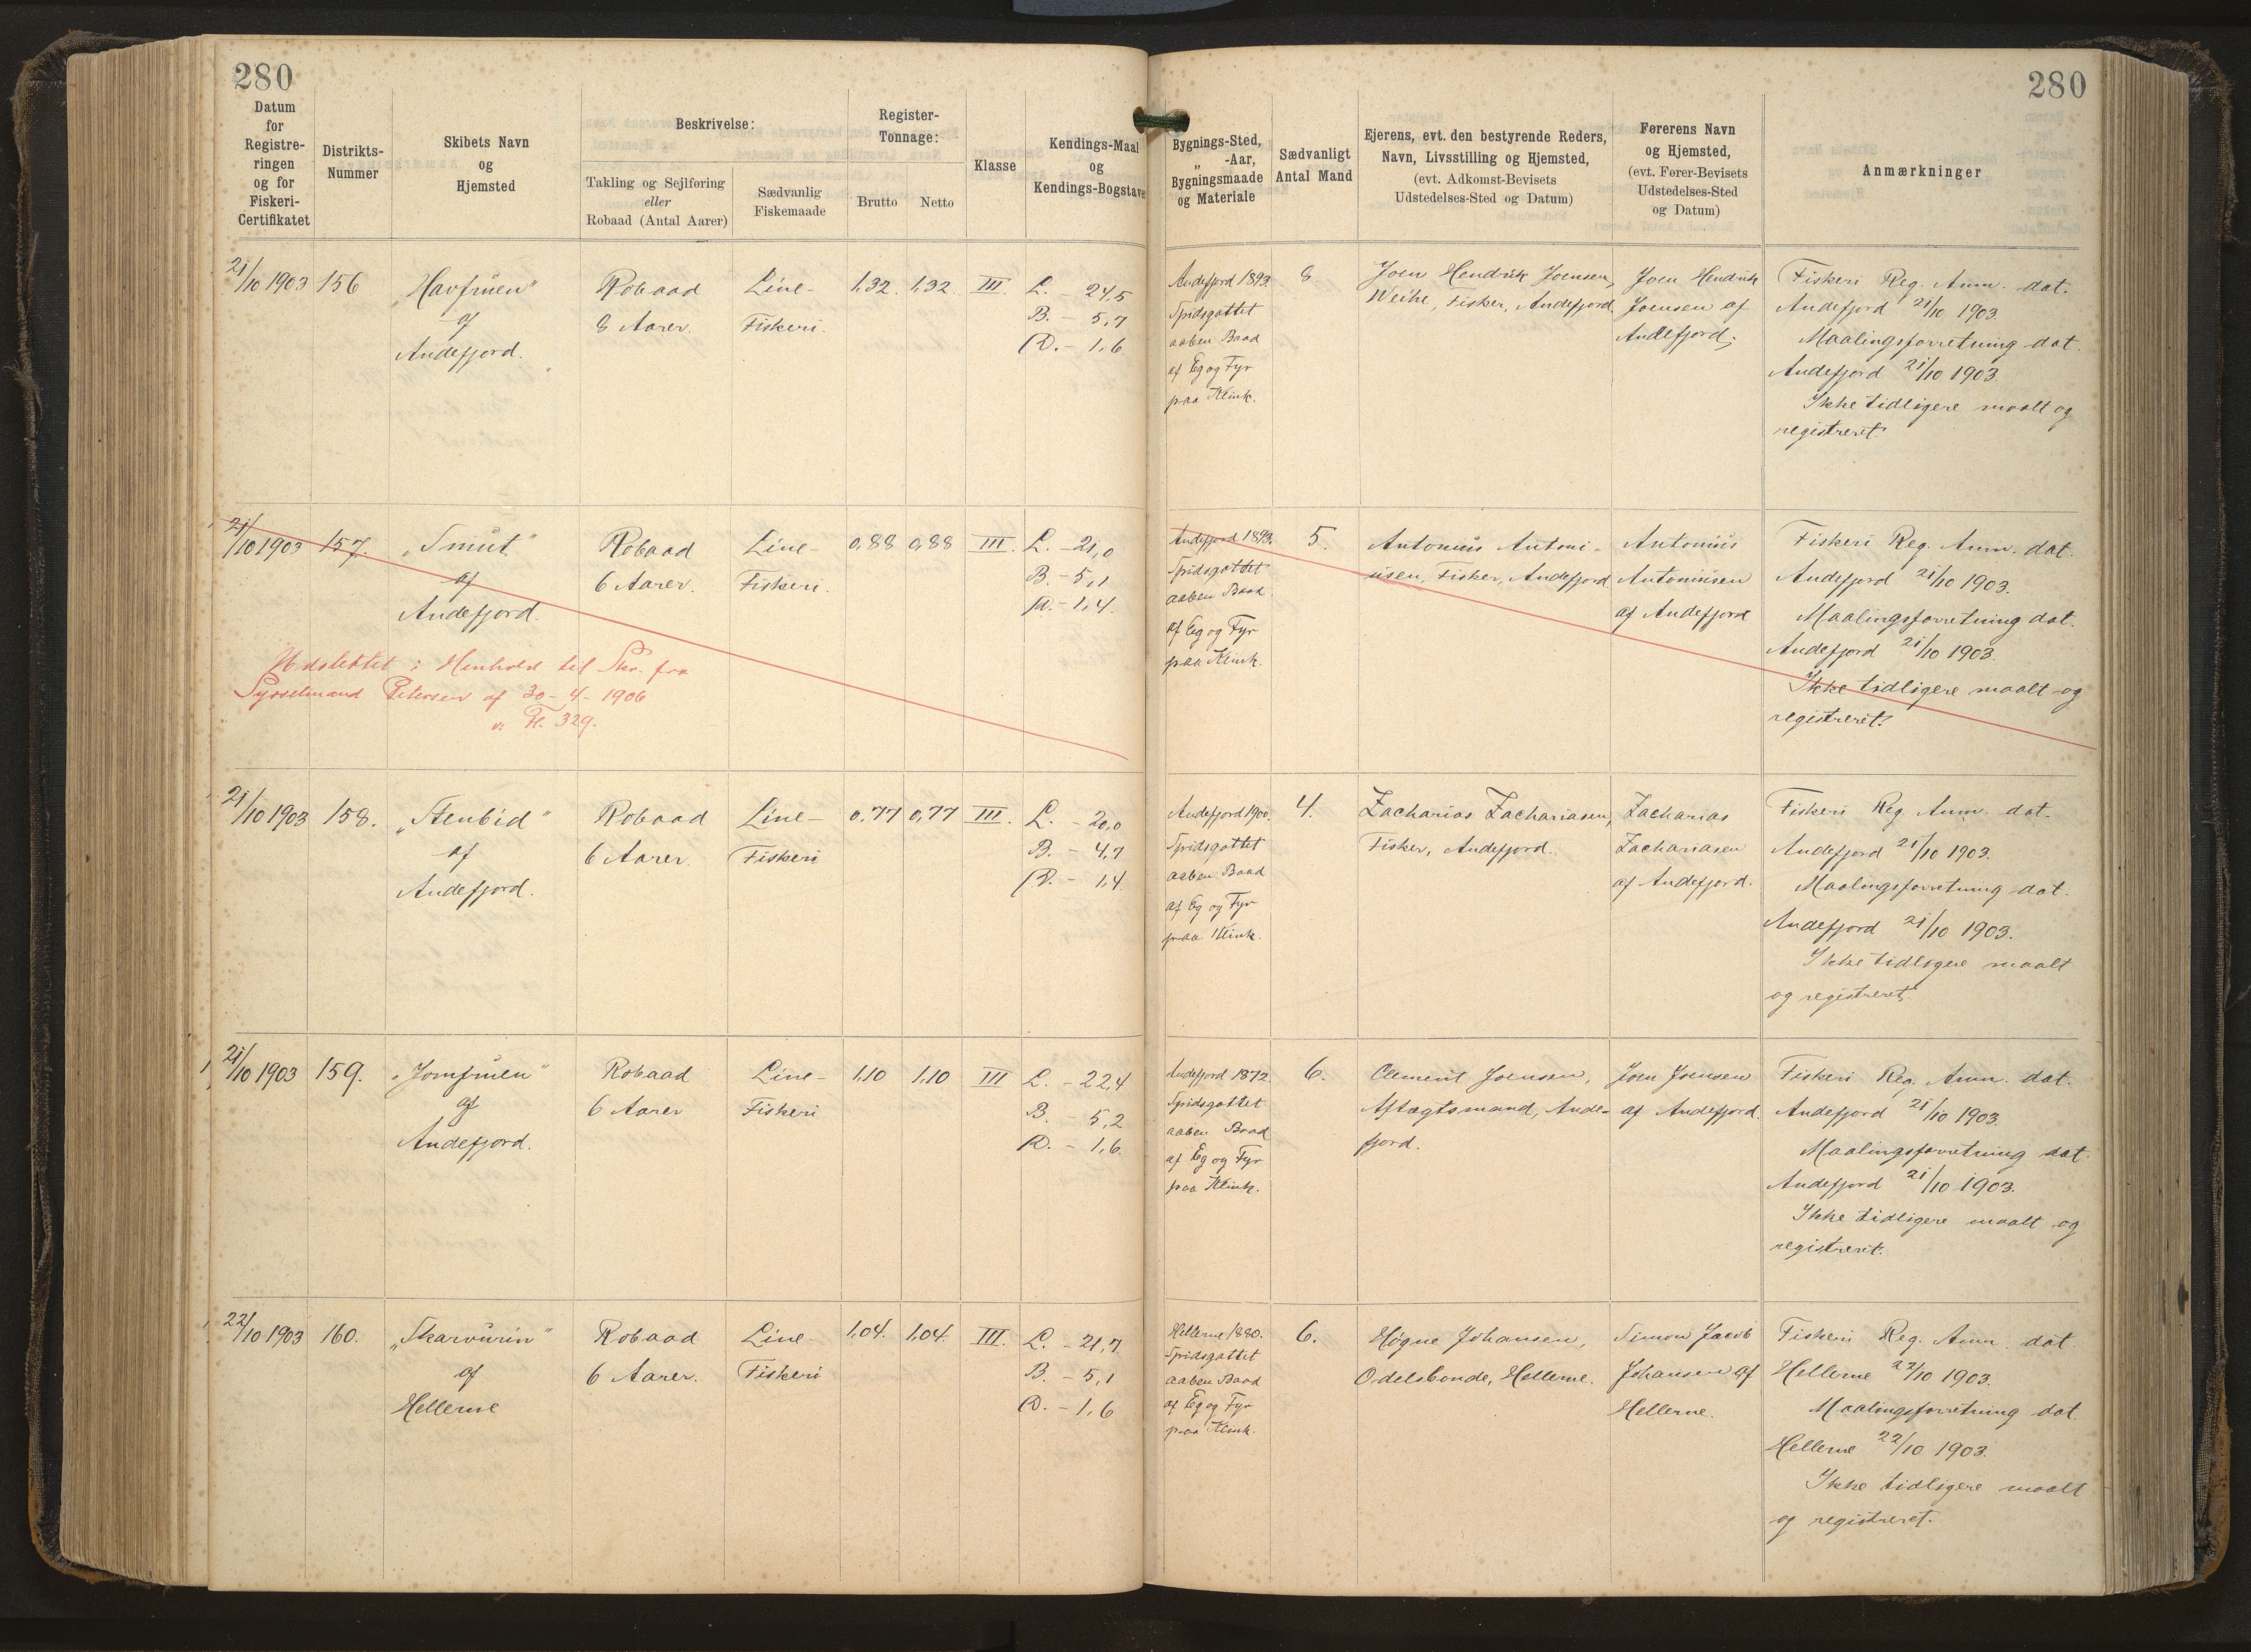 280
280
Datum
for
Registre-
ringen
og for
Fiskeri-
Certifikatet
Distrikts-
Nummer
Skibets Navn
og
Hjemsted
Beskrivelse:
Takling og Sejlføring
eller
Robaad (Antal Aarer)
Sædvanlig
Fiskemaade
Register-
Tonnage:
Brutto
Netto
Klasse
Kendings-Maal
og
Kendings-Bogstaver
Bygnings-Sted,
„ -Aar,
Bygningsmaade
og Materiale
Sædvanligt
Antal Mand
Ejerens, evt. den bestyrende Reders,
Navn, Livsstilling og Hjemsted,
(evt. Adkomst-Bevisets
Udstedelses-Sted og Datum)
Førerens Navn
og Hjemsted,
(evt. Fører-Bevisets
Udstedelses-Sted
og Datum)
Anmærkninger
21/10 1903
156
„Havfruen"
af
Andefjord.
Robaad
8 Aarer.
Line-
Fiskeri.
1,32.
1,32.
III.
L. - 24,5
B. - 5,7
D. - 1,6
Andefjord 1893.
Spidsgattet
aaben Baad
af Eg og Fyr
paa Klink.
8.
Joen Hendrik Joensen,
Weihe, Fisker, Andefjord.
Joen Hendrik
Joensen af
Andefjord.
Fiskeri Reg. Anm. dat.
Andefjord 21/10 1903.
Maalingsforretning dat.
Andefjord 21/10 1903.
Ikke tidligere maalt og
registreret.
21/10 1903
157.
„Smut"
af
Andefjord.
Robaad
6 Aarer.
Line-
Fiskeri.
0,88
0,88
III.
L. - 21,0
B. - 5,1
D. - 1,4.
Udslettet i Henhold til Skr. fra
Sysselmand Petersen af 30-4-1906
v. Fl. 329.
Andefjord 1893.
Spidsgattet
aaben Baad
af Eg og Fyr
paa Klink.
5.
Antonius Antoni-
usen, Fisker, Andefjord
Antonius
Antoniusen
af Andefjord
Fiskeri Reg. Anm. dat.
Andefjord 21/10 1903.
Maalingsforretning dat.
Andefjord 21/10 1903.
Ikke tidligere maalt og
registreret.
21/10 1903
158.
„Stenbid"
af
Andefjord.
Robaad
6 Aarer.
Line-
Fiskeri
0,77
0,77
III.
L. - 20,0
B. - 4,7
D. - 1,4.
Andefjord 1900.
Spidsgattet
aaben Baad
af Eg og Fyr
paa Klink.
4.
Zacharias Zachariasen,
Fisker, Andefjord.
Zacharias
Zachariasen
af Andefjord.
Fiskeri Reg. Anm. dat.
Andefjord 21/10 1903.
Maalingsforretning dat.
Andefjord 21/10 1903.
Ikke tidligere maalt
og registreret.
21/10 1903
159.
„Jomfruen"
af
Andefjord.
Robaad
6 Aarer
Line-
Fiskeri
1,10
1,10
III
L. - 22,4
B. - 5,2
D. - 1,6.
Andefjord 1872.
Spidsgattet
aaben Baad
af Eg og Fyr
paa Klink.
6.
Clement Joensen,
Aftægtsmand, Ande-
fjord.
Joen Joensen
af Andefjord.
Fiskeri Reg. Anm. dat.
Andefjord 21/10 1903.
Maalingsforretning dat.
Andefjord 21/10 1903.
Ikke tidligere maalt og
registreret.
22/10 1903
160.
„Skarvurin"
af
Hellerne
Robaad
6 Aarer.
Line-
Fiskeri
1,04.
1,04.
III.
L. - 21,7
B. - 5,1
D. - 1,6
Hellerne 1880.
Spidsgattet
aaben Baad
af Eg og Fyr
paa Klink.
6.
Høgne Johansen,
Odelsbonde, Hellerne.
Simon Jacob
Johansen af
Hellerne.
Fiskeri Reg. Anm. dat.
Hellerne 22/10 1903.
Maalingsforretning dat.
Hellerne 22/10 1903.
Ikke tidligere maalt
og registreret.